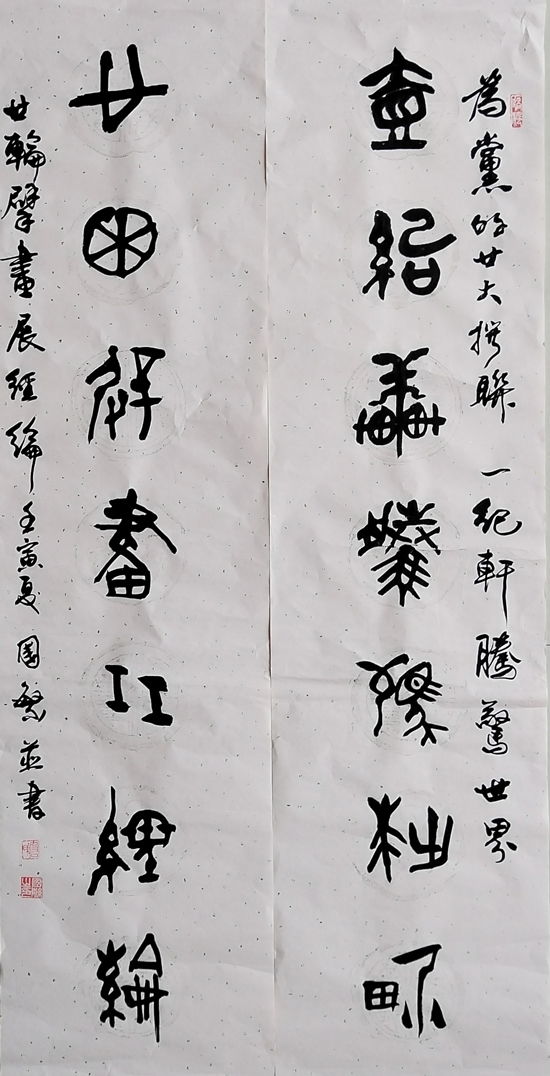 為黨的廿大撰聯 一紀軒騰驚世界
壹紀軒騰驚世界
廿輪擘畫展經綸
廿輪擘畫展經綸 壬寅夏 國繁並書